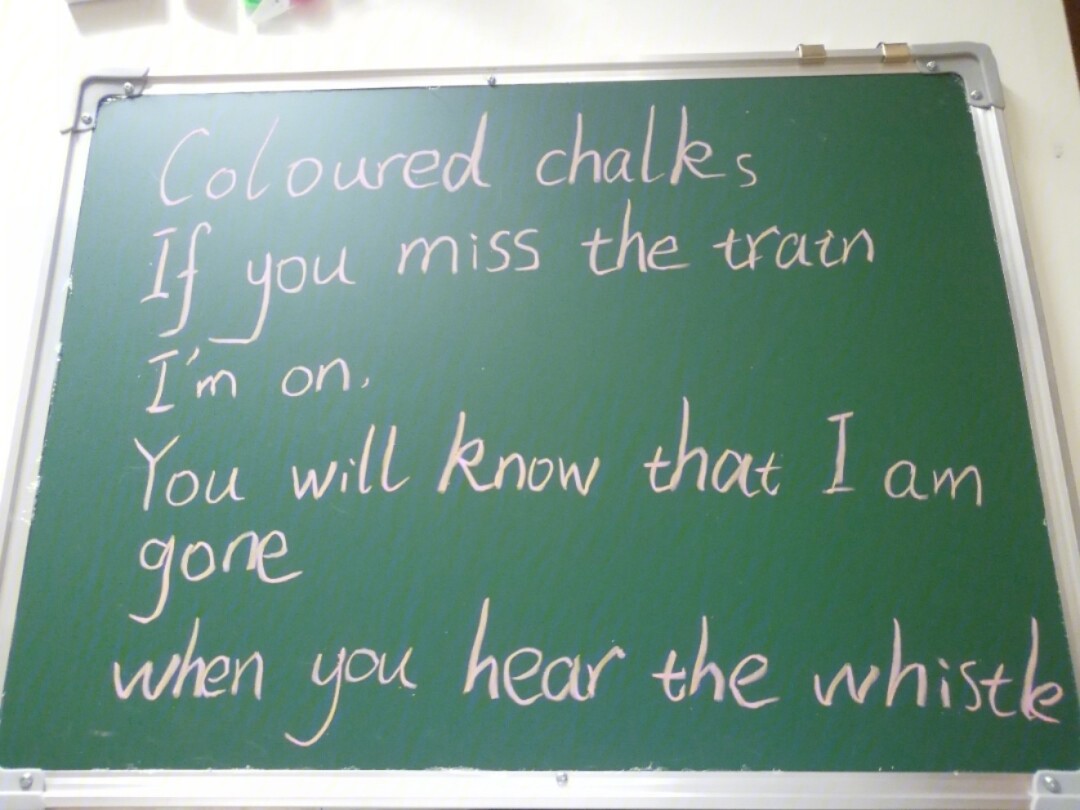 Coloured chalks
If you miss the train
I'm on.
You will know that I am
gone
when you hear the whistle